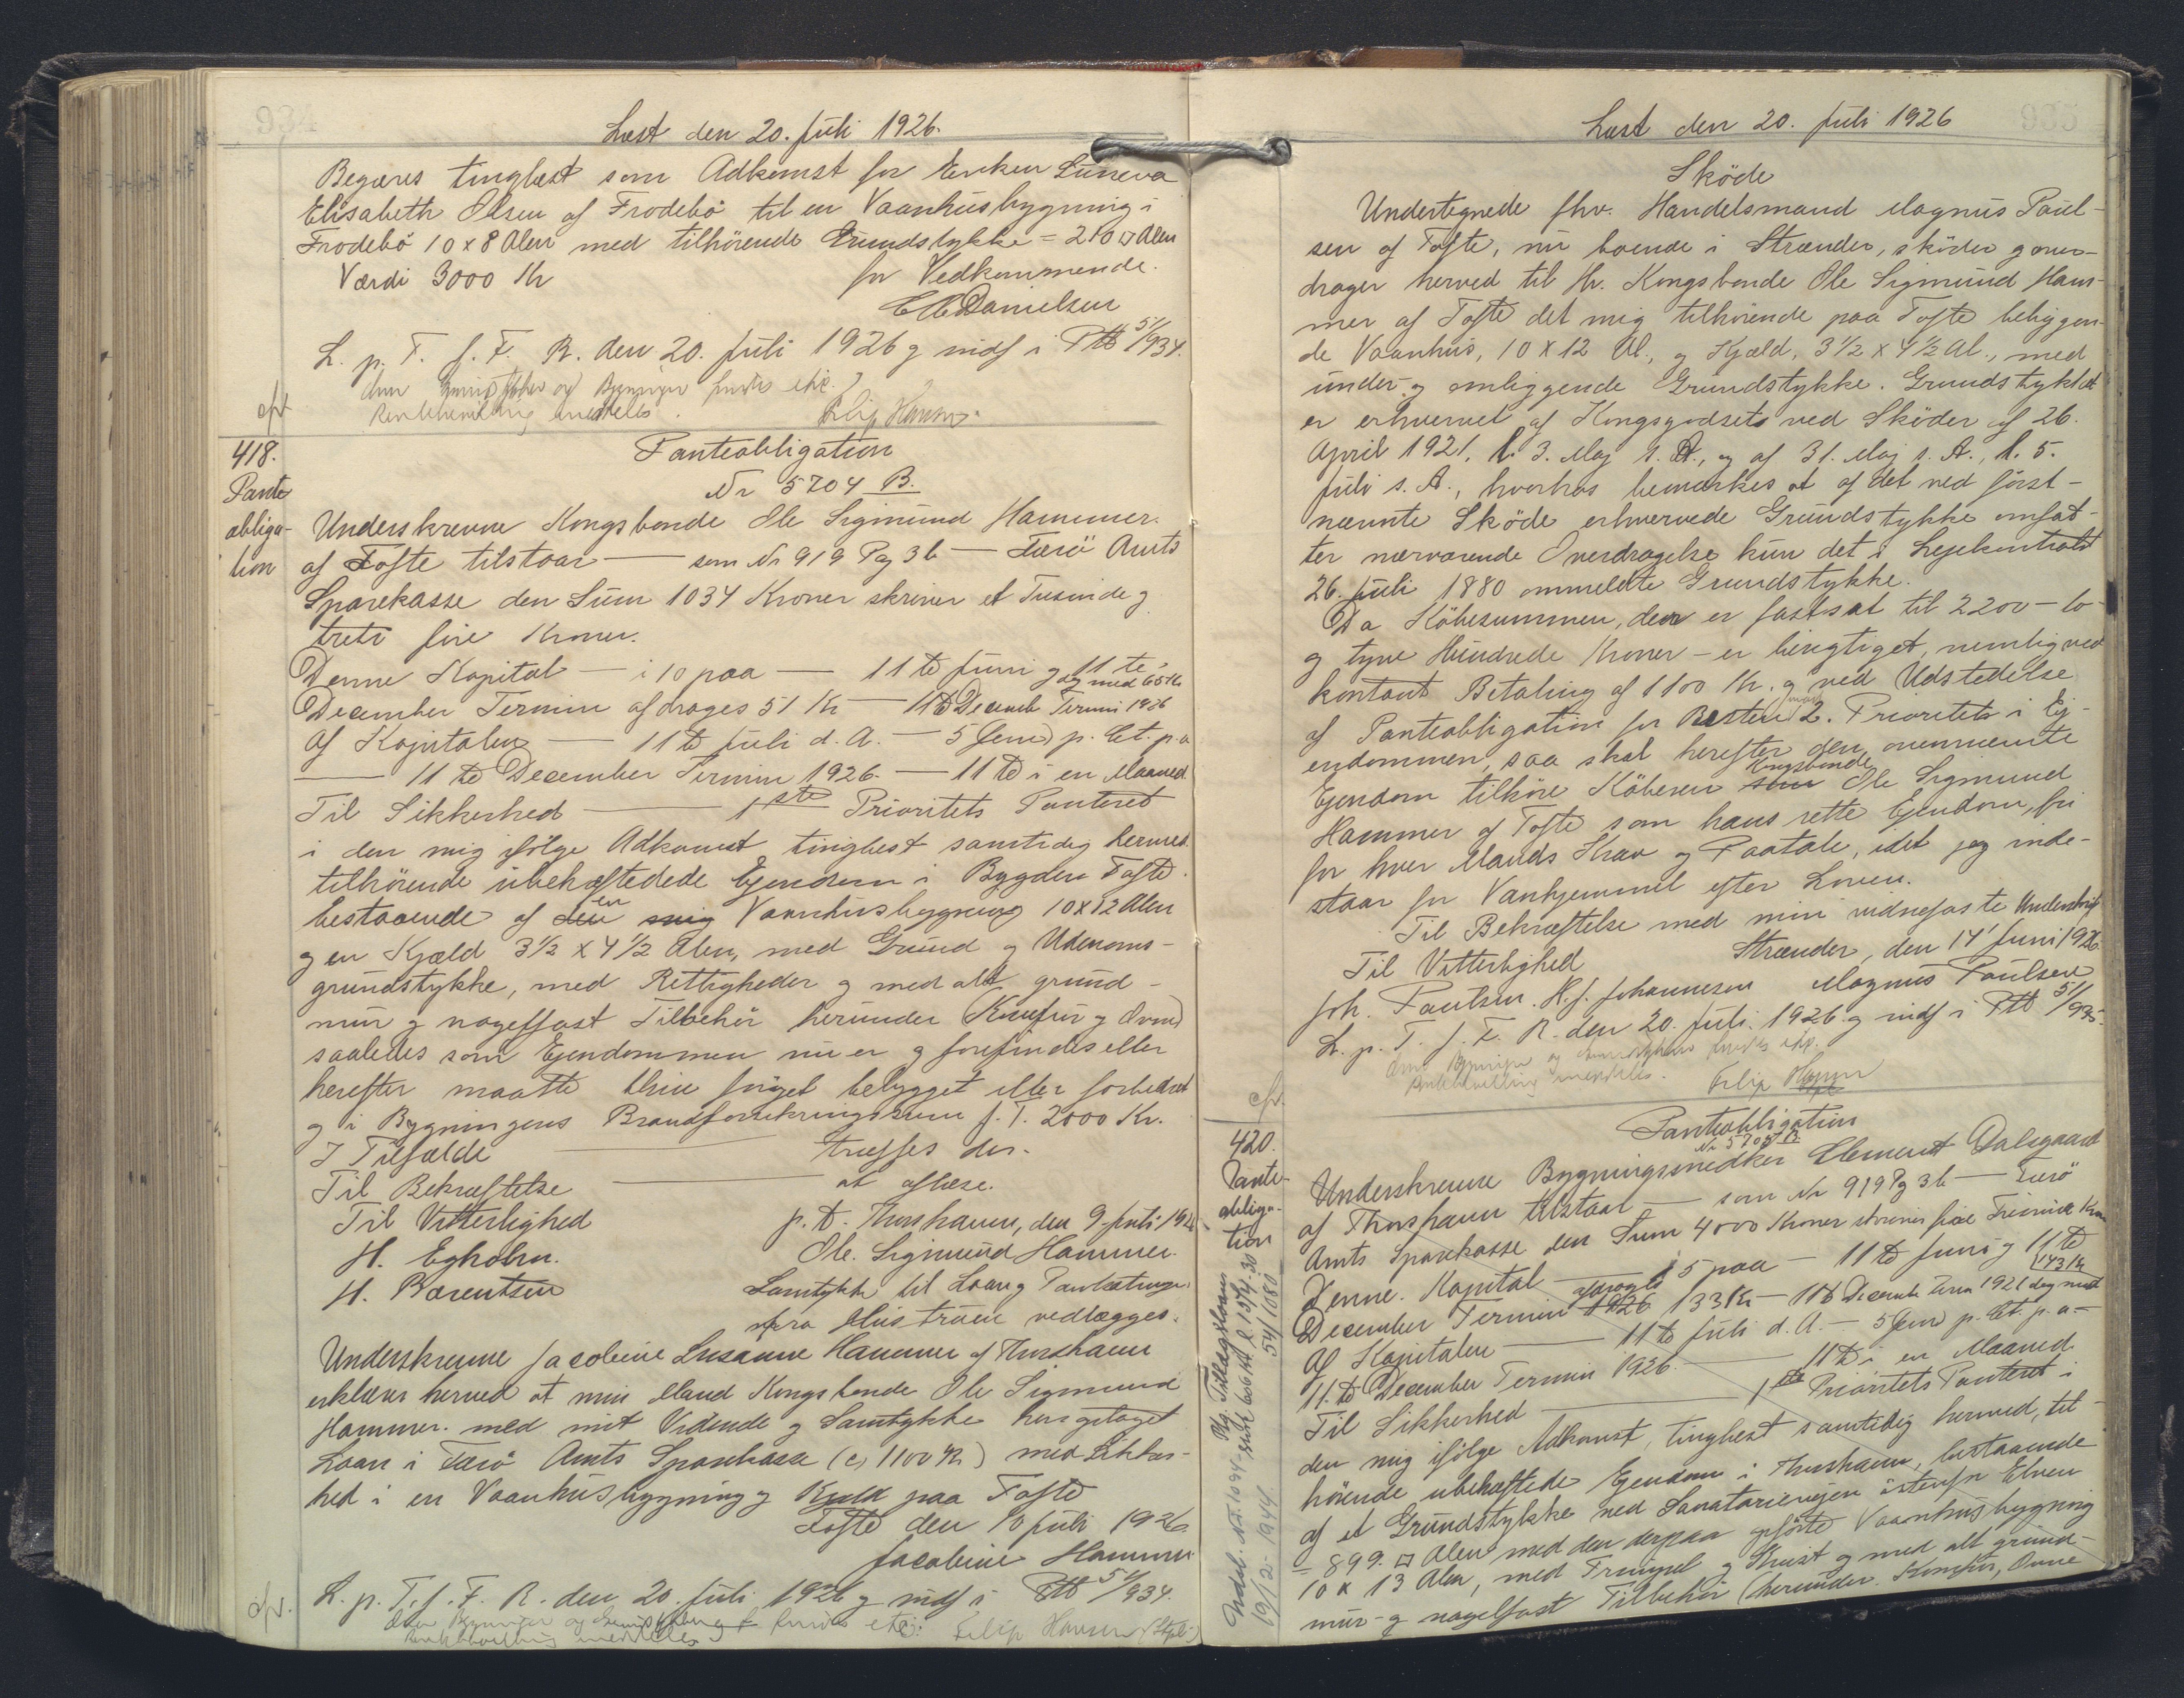 Læst den 20. Juli 1926.
Begæres tinglæst som Adkomst for Enken Suneva
Elisabeth Olsen af Frodebö til en Vaanhusbygning i
Frodebö 10 x 8 Alen med tilhörende Grundstykke = 210 □ Alen
Værdi 3000 Kr for Vedkommende.
Danielsen
L. p. T. f. F. R. den 20. Juli 1926 g indf i Ptb 51/934.
Grundstykker og Bygninger findes ikke.
meddeles. Filip Hansen.
cfr
418.
Pante
obliga-
tion
Panteobligation
Nr 5704 B.
Underskrevne Kongsbonde Ole Sigmund Hammer.
af Tofte tilstaar — som Nr 919 Pg 36 — Færö Amts
Sparekasse den Sum 1034 Kroner skriver et Tusinde g
treti fire Kroner.
Denne Kapital — i 10 paa — 11 te Juni g 11 te
December Termin afdrages 51 Kr — 11 te Decemb Termin 1926 dog med 65 Kr
Af Kapitalen — 11 te Juli d. A. — 5 (fem) p. Ct. p. a
— 11 te December Termin 1926. — 11 te i en Maaned
Til Sikkerhed — 1ste Prioritets Panteret
i den mig ifölge Adkomst tinglæst samtidig hermed
tilhörende ubehæftedede Ejendom i Bygden Tofte.
bestaaende af den en mig Vaanhusbygning 10 x 12 Alen
g en Kjæld 3½ x 4½ Alen, med Grund g Udenoms-
grundstykke, med Rettigheder g med alt grund-
mur g nagelfast Tilbehör herunder (Komfur g Ovne)
saaledes som Ejendommen nu er g forefindes eller
herefter maatte blive foröget bebygget eller forbedret
g i Bygningens Brandforsikringssum f. T. 2000 Kr.
I Tilfælde — træffes der.
Til Bekræftelse — at aflæse.
Til Vitterlighed p. t. Thorshavn, den 9. Juli 1926
H. Egholm. Ole Sigmund Hammer.
H. Barentsen Samtykke til Laan g Pantsætning
fra Hustruen vedlægges.
Underskrevne Jacobine Susanne Hammer af Thorshavn
erklærer herved at min Mand Kongsbonde Ole Sigmund
Hammer. med mit Vidende g Samtykke har optaget
Laan i Færö Amts Sparekasse (c, 1100 Kr) med Sikker-
hed i en Vaanhusbygning g Kjæld paa Tofte
Tofte den 10 Juli 1926
Jacobine Hammer
cfr. L. p. T. f. F. R. den 20. Juli 1926 g indf i Ptb 51/934.
Bygninger og Grundstykke findes ikke.
meddeles. Filip Hansen
Læst den 20. Juli 1926
Sköde
Undertegnede fhv. Handelsmand Magnus Poul-
sen af Tofte, nu boende i Strænder, sköder g over-
drager herved til Hr. Kongsbonde Ole Sigmund Ham-
mer af Tofte det mig tilhörende paa Tofte beliggen-
de Vaanhus, 10 x 12 Al., g Kjæld, 3½ x 4½ Al., med
under- g omliggende Grundstykke. Grundstykket
er erhvervet af Kongsgodsets ved Sköder af 26.
April 1921, l. 3. Maj s. A., og af 31. Maj s. A., l. 5.
Juli s. A., hvorhos bemærkes at af det ved först-
nævnte Sköde erhvervede Grundstykke omfat-
ter nærværende Overdragelse kun det i Lejekontrakt
26. Juli 1880 ommeldte Grundstykke.
Da Köbesummen, der er fastsat til 2200 — to
g tyve Hundrede Kroner — er berigtiget, nemlig ved
kontant Betaling af 1100 Kr. g ved Udstedelse
af Panteobligation for Resten mod 2. Prioritets i Ej-
endommen, saa skal herefter den ovennævnte
Ejendom tilhöre Köberen som Kongsbonde Ole Sigmund
Hammer af Tofte som hans rette Ejendom, fri
for hver Mands Krav g Paatale, idet jeg inde-
staar for Vanhjemmel efter Loven.
Til Bekræftelse med min vidnefaste Underskrift
Til Vitterlighed Strænder, den 14' Juni 1926.
Joh. Poulsen. H. J. Johannesen Magnus Poulsen
L. p. T. f. F. R. den 20. Juli 1926 g indf i Ptb 51/935.
Bygninger og Grundstykke findes ikke.
meddeles. Filip Hansen
cfr.
420.
Pante-
obliga-
tion
Panteobligation
Nr 5705 B.
Underskrevne Bygningssnedker Clement Dalsgaard
af Thorshavn tilstaar — som Nr 919 Pg 36 — Færö
Amts Sparekasse den Sum 4000 Kroner skriver fire Tusinde Kron
Denne Kapital — i 15 paa — 11 te Juni g 11 te
December Termin 1926 afdrages 133 Kr — 11 te Decemb Term 1921 dog med 143 Kr
Af Kapitalen — 11 te Juli d. A. — 5 (fem) p. Ct. p. a —
11. te December Termin 1926. — 11 te i en Maaned
Til Sikkerhed — 1ste Prioritets Panteret i
den mig ifölge Adkomst, tinglæst samtidig hermed, til-
hörende ubehæftede Ejendom i Thorshavn, bestaaende
af et Grundstykke ved Sanatorievejen östenfor Elven
= 899. □ Alen med den derpaa opförte Vaanhusbygning
10 x 13 Alen, med Frempel g Kvist g med alt grund-
mur- g nagelfast Tilbehör (herunder Komfur, Ovne
19/12-1944
54/1080